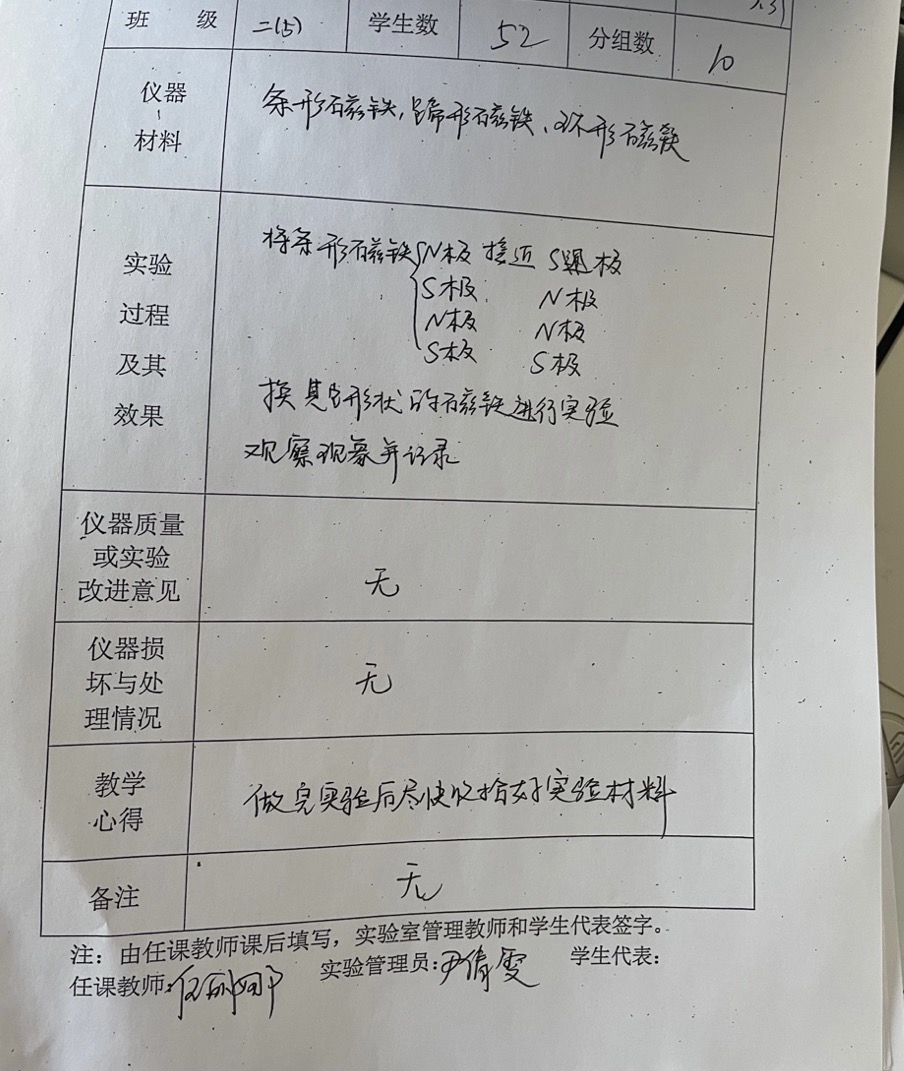 班 级 二(5) 学生数 52 分组数 10
仪器
、
材料
条形磁铁,蹄形磁铁、环形磁铁
实验
过程
及其
效果
将条形磁铁 N极 接近 S极
S极 N极
N极 N极
S极 S极
换其它形状的磁铁进行实验
观察现象并记录
仪器质量
或实验
改进意见
无
仪器损
坏与处
理情况
无
教学
心得
做完实验后尽快收拾好实验材料
备注
无
注:由任课教师课后填写,实验室管理教师和学生代表签字。
任课教师: 实验管理员:尹倩雯 学生代表: